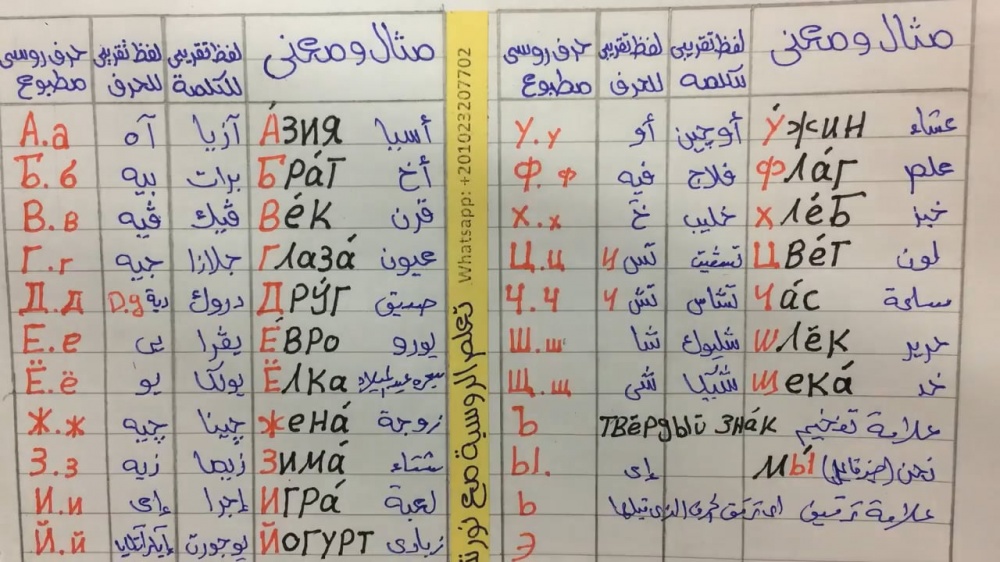 حرف روسى مطبوع لفظ تقريبى للحرف لفظ تقريبى للكلمة مثال ومعنى
А.а آه آزيا А́ЗИЯ أسيا
Б.б بيه برات БРА́Т أخ
В.в ڤيه ڤيك ВЕ́К قرن
Г.г جيه جلازا ГЛАЗА́ عيون
Д.д D.g دية دروك ДРУ́Г صيق
Е.е يى يڤرا Е́ВРО يورو
Ё.ё يو يولكا ЁЛКА شجره عيد الميلاد
Ж.ж چيه چينا ЖЕНА́ زوجة
З.з زيه زيما ЗИМА́ شتاء
И.и إى إجرا ИГРА́ لعبة
Й.й يوجورت ЙОГУРТ زبادى
تعلم الروسية مع نورش Whatsapp: +201023207702
حرف روسى مطبوع لفظ تقريبى للحرف لفظ تقريبى للكلمه مثال ومعنى
У.у أو أوچين У́ЖИН عشاء
Ф.ф فيه فلاج ФЛА́Г علم
Х.х خ خليب ХЛЕ́Б خبز
Ц.ц تس ц تسڤيت ЦВЕ́Т لون
Ч.ч تش ч تشاس ЧА́С ساعة
Ш.ш شا شليوك ШЛЁК حرير
Щ.щ شى شيكا ЩЕКА́ خد
Ъ ТВЁРДЫЙ ЗНА́К علامة تفخيم
Ы. إى МЫ́ نحن
Ь علامة ترقيق اى ترقيق الحرف الذى قبلها
Э